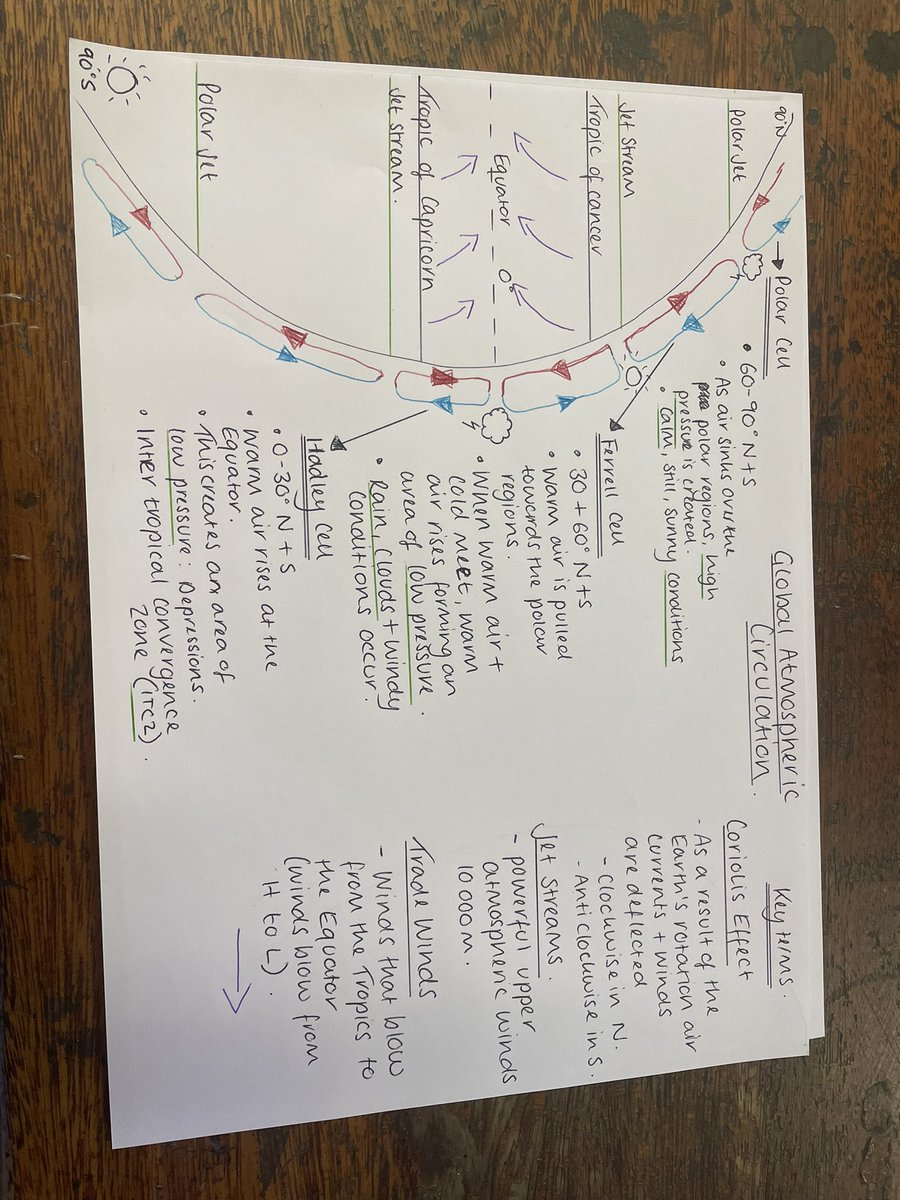 Global Atmospheric
Circulation.
90°N
Polar Jet
Jet Stream
Tropic of cancer
Equator 0°
Tropic of Capricorn
Jet Stream.
Polar Jet
90°S
Polar Cell
• 60-90° N+S
• As air sinks over the
polar regions, high
pressure is created.
• Calm, still, sunny conditions
Ferrell Cell
• 30 + 60° N+S
• Warm air is pulled
towards the polar
regions.
• When warm air +
cold meet, warm
air rises forming an
area of low pressure.
• Rain, clouds + windy
conditions occur.
Hadley Cell
• 0-30° N + S
• Warm air rises at the
Equator.
• This creates an area of
low pressure: Depressions.
• Inter tropical convergence
zone (ITCZ).
Key terms.
Coriolis Effect
- As a result of the
Earth's rotation air
currents + winds
are deflected
- Clockwise in N.
- Anticlockwise in S.
Jet Streams.
- powerful upper
atmospheric winds
10 000m.
Trade Winds
- Winds that blow
from the Tropics to
the Equator
(winds blow from
H to L).